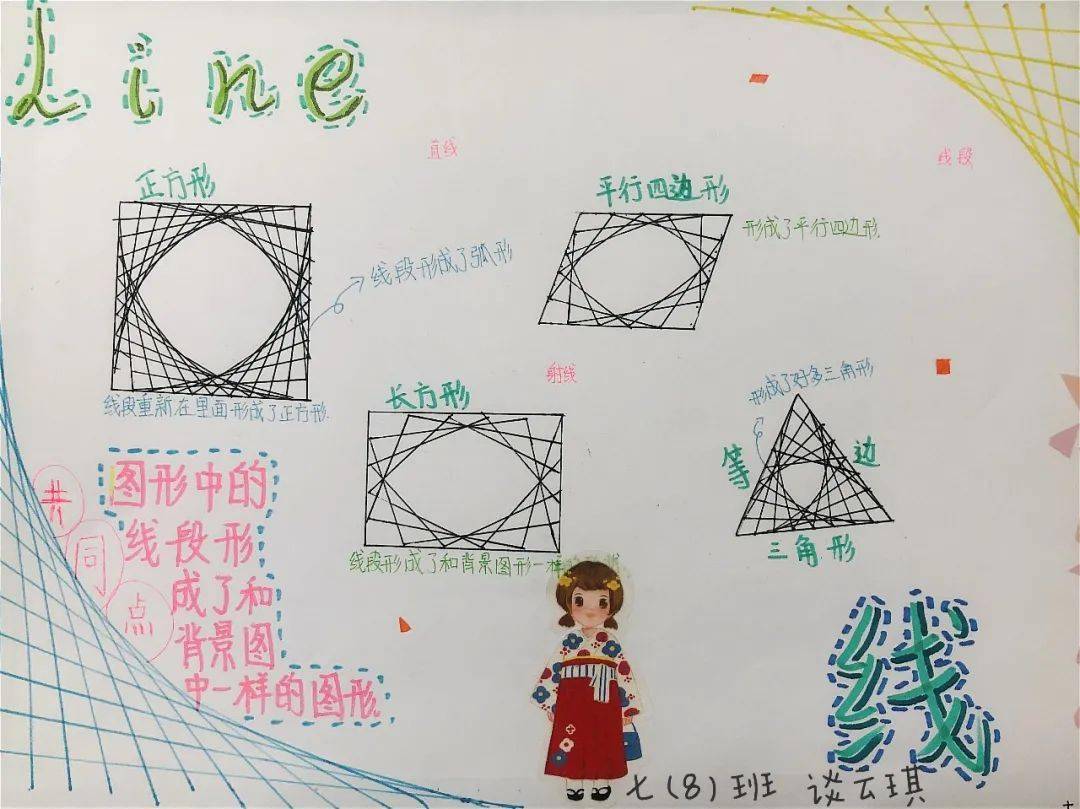 Line
直线
线段
正方形
平行四边形
形成了平行四边形
线段形成了弧形
射线
形成了好多三角形
长方形
线段重新在里面形成了正方形.
等 边
三角形
线段形成了和背景图形一样
共同点
图形中的
线段形
成了和
背景图
中一样的图形.
线
七(8)班 谈云琪